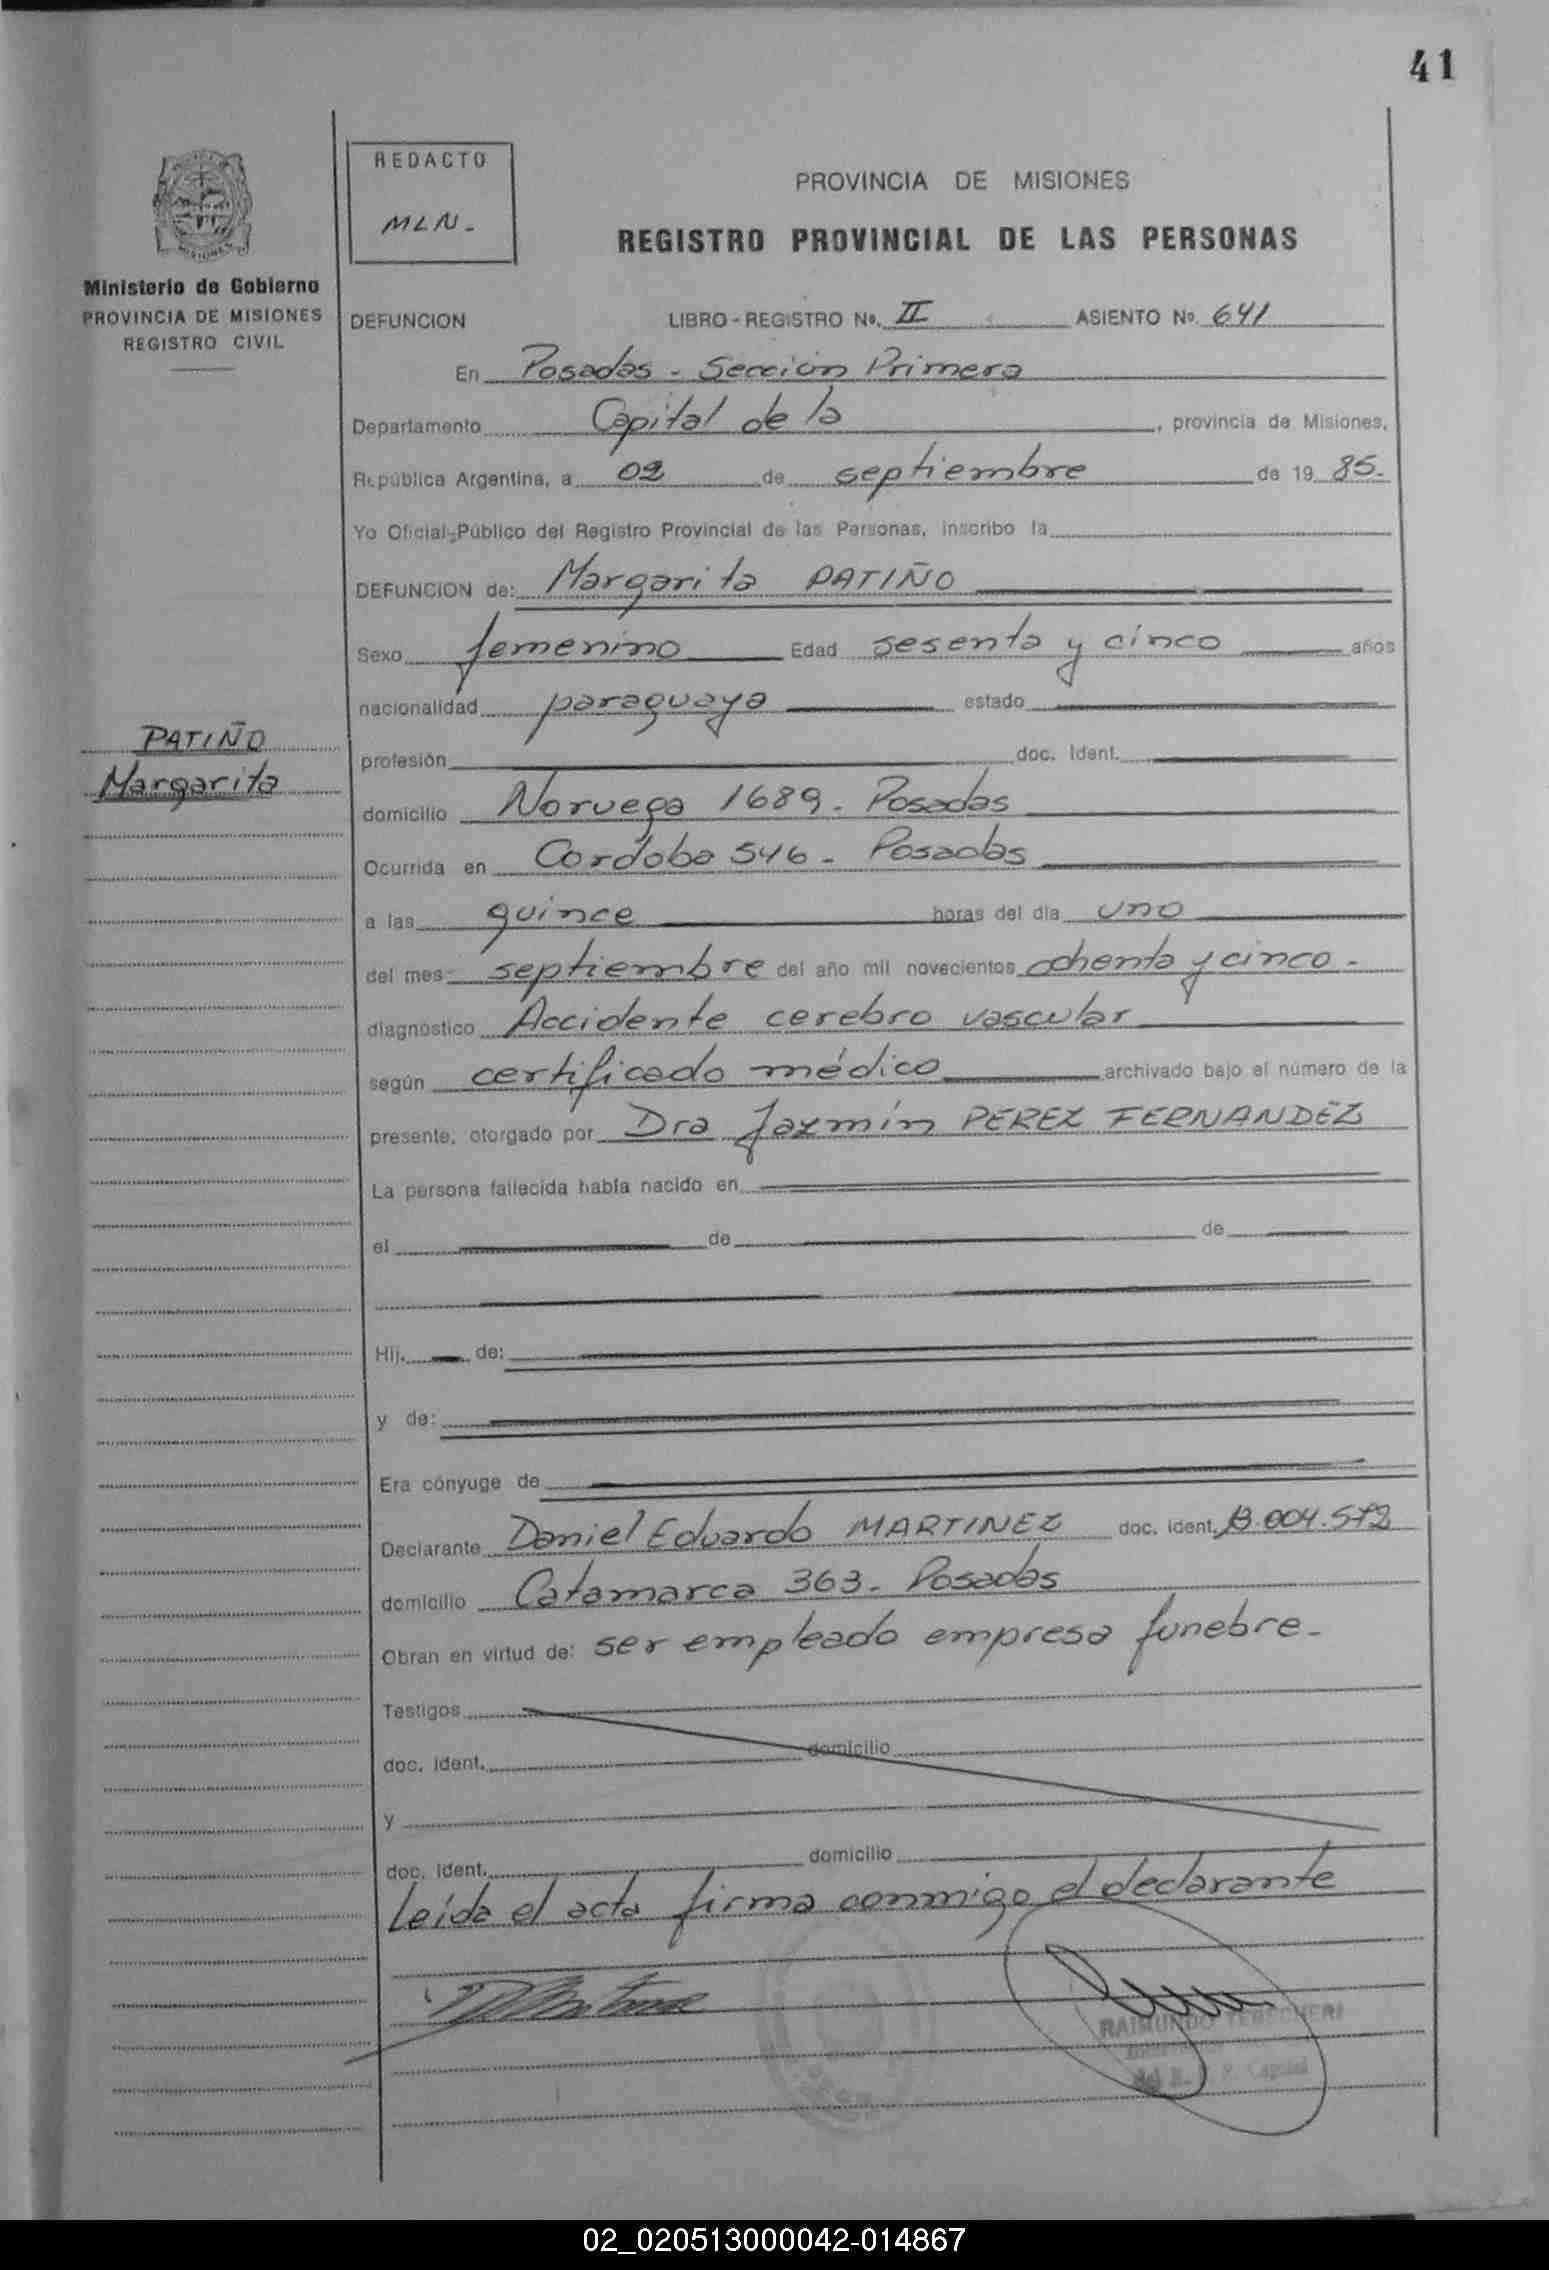 41
REDACTO
MLN.-
Ministerio de Gobierno
PROVINCIA DE MISIONES
REGISTRO CIVIL
PROVINCIA DE MISIONES
REGISTRO PROVINCIAL DE LAS PERSONAS
DEFUNCION LIBRO - REGISTRO Nº. II ASIENTO Nº. 641
En Posadas - Sección Primera
Departamento Capital de la , provincia de Misiones,
República Argentina, a 02 de septiembre de 19 85.-
Yo Oficial Público del Registro Provincial de las Personas, inscribo la
DEFUNCION de: Margarita PATIÑO
Sexo femenino Edad sesenta y cinco años
nacionalidad paraguaya estado
PATIÑO
Margarita
profesión doc. ident.
domicilio Noruega 1689 - Posadas
Ocurrida en Cordoba 546 - Posadas
a las quince horas del día uno
del mes septiembre del año mil novecientos ochenta y cinco -
diagnóstico Accidente cerebro vascular
según certificado médico archivado bajo el número de la
presente, otorgado por Dra Jazmín PEREZ FERNANDEZ
La persona fallecida había nacido en
el de de
Hij. de:
y de:
Era cónyuge de
Declarante Daniel Eduardo MARTINEZ doc. ident.
domicilio Catamarca 363 - Posadas
Obran en virtud de: ser empleado empresa funebre -
Testigos
doc. ident. domicilio
y
doc. ident. domicilio
Leída el acta firma conmigo el declarante
RAIMUNDO
02_020513000042-014867